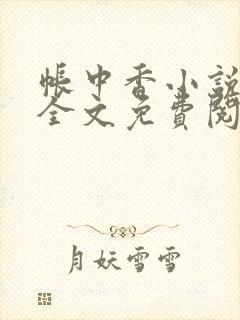 帳中香小說
全文免費閱
月妖雪雪